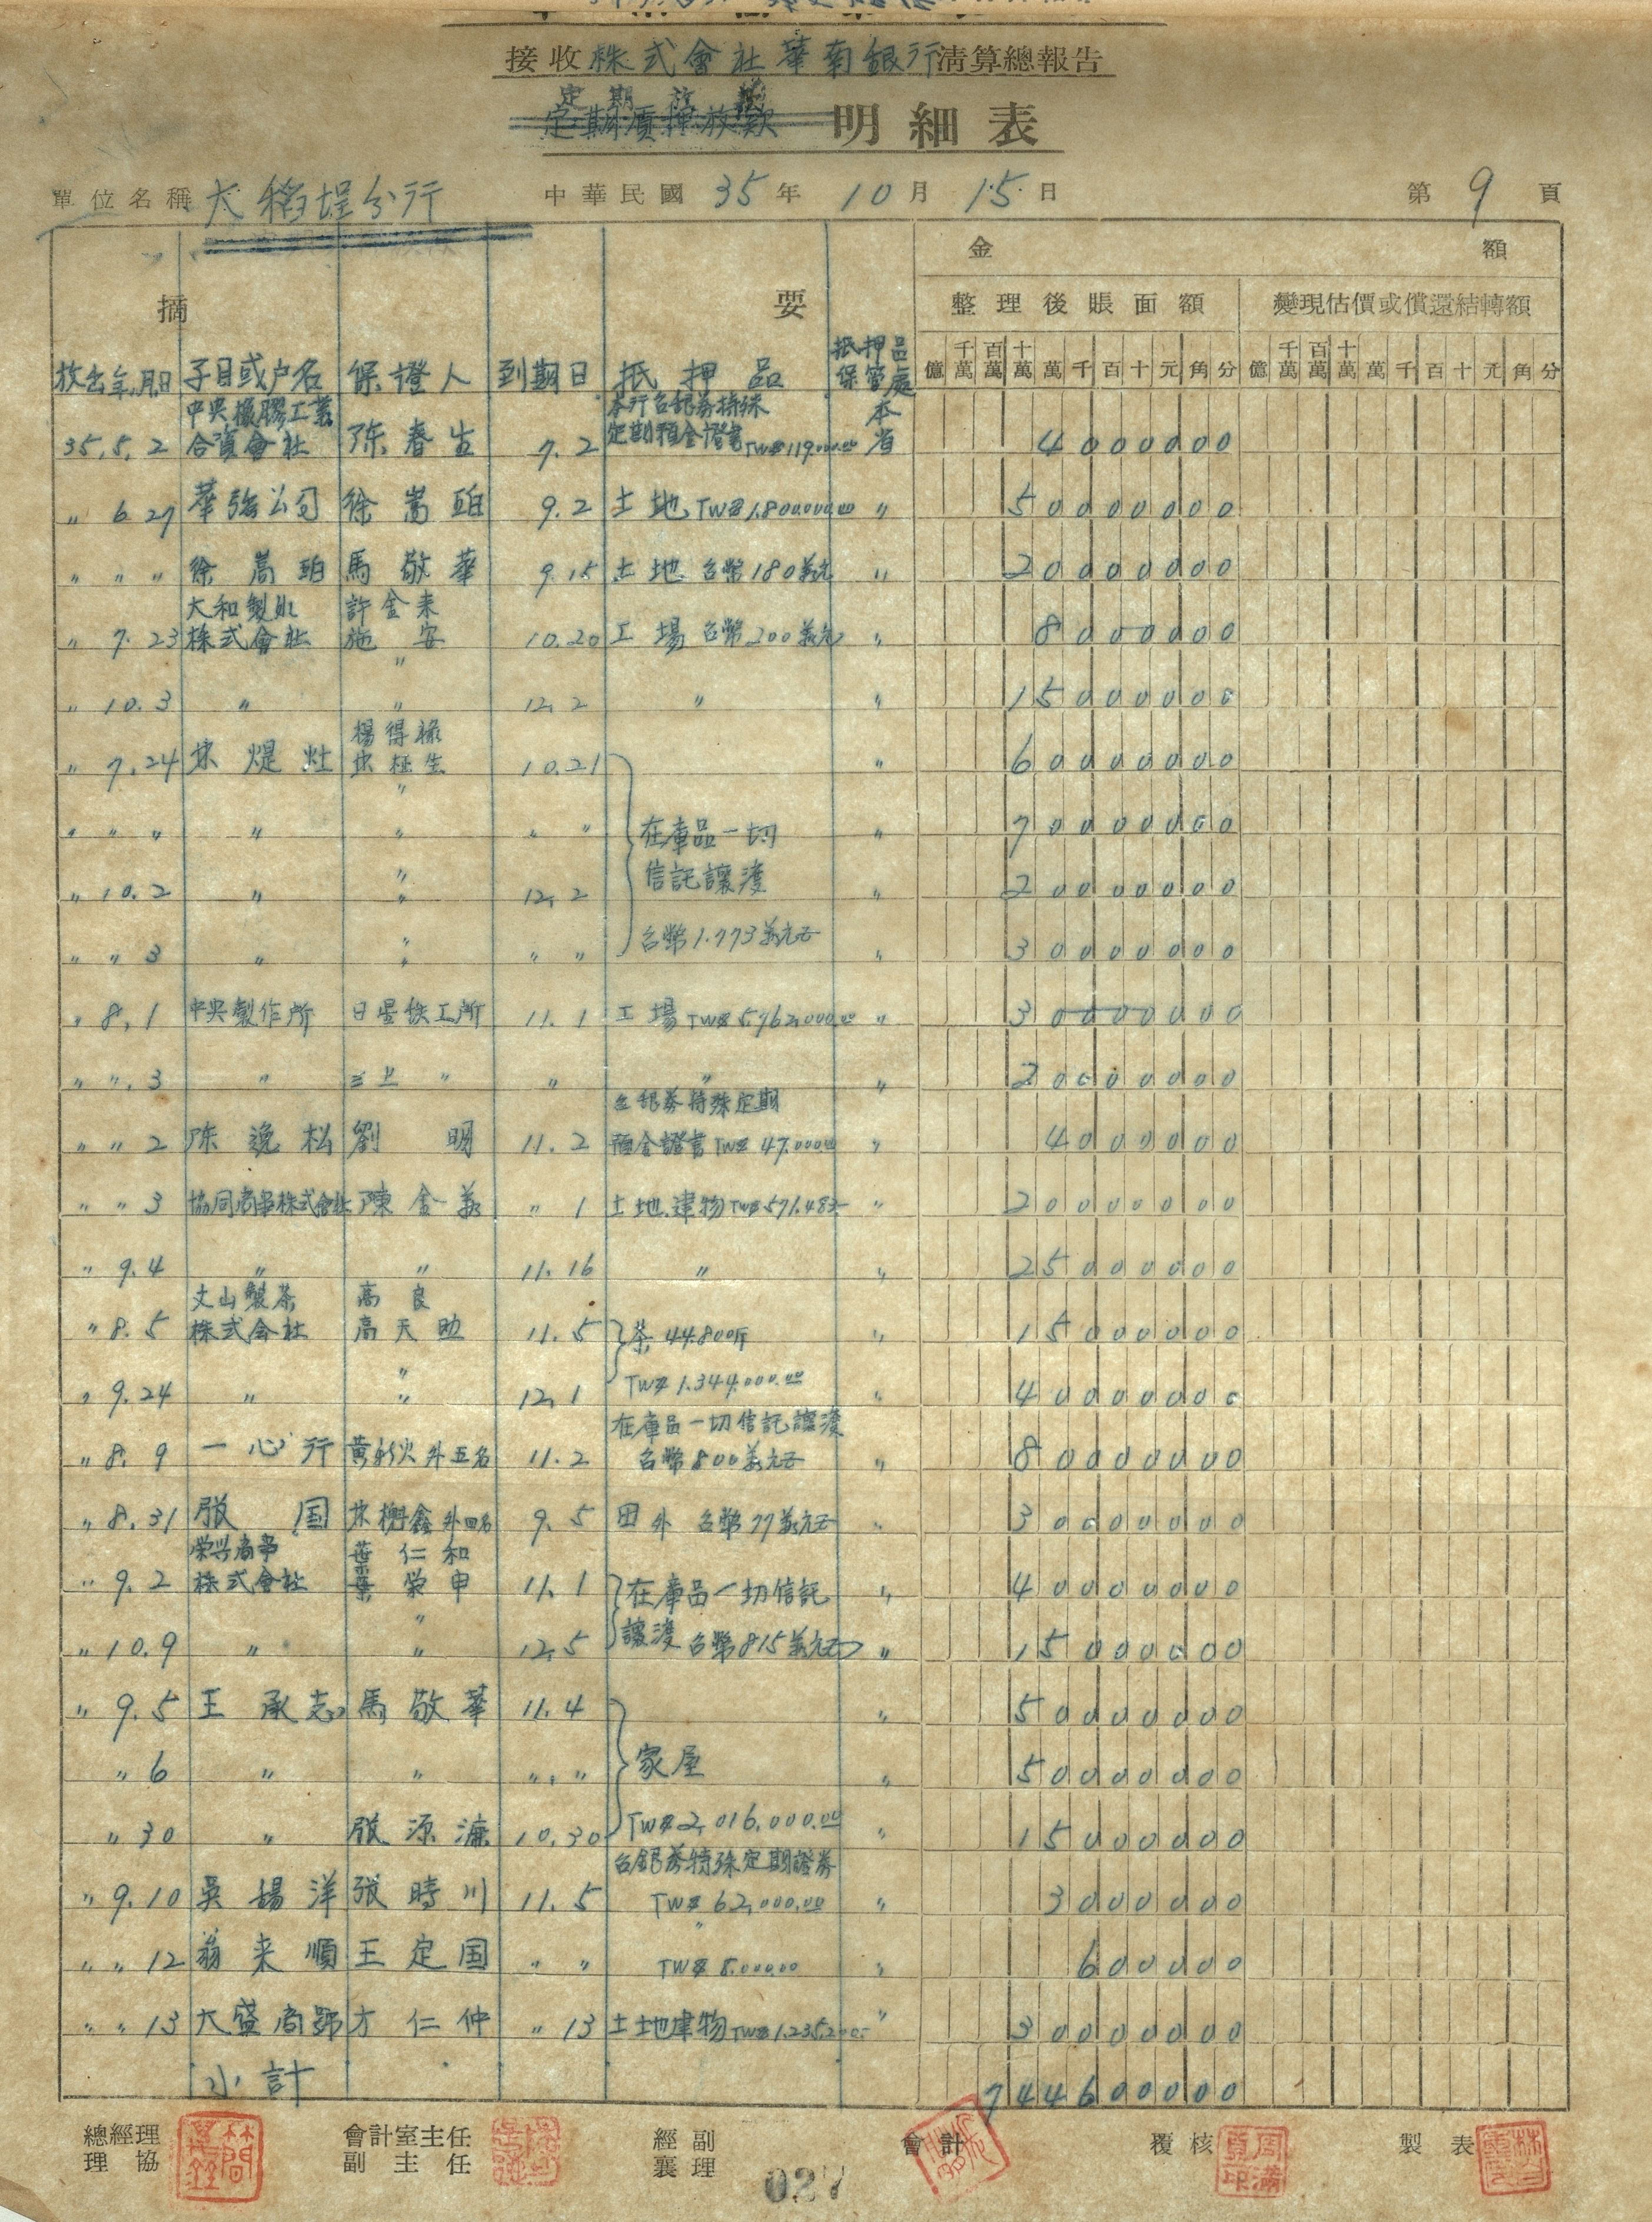 接收株式會社華南銀行清算總報告
定期放款
定期質押放款 明細表
單位名稱 大稻埕分行 中華民國 35 年 10 月 15 日 第 9 頁
摘 要 金 額
整理後賬面額 變現估價或償還結轉額
放出年月日 子目或户名 保證人 到期日 抵押品 抵押品保管處 億 千萬 百萬 十萬 萬 千 百 十 元 角 分 億 千萬 百萬 十萬 萬 千 百 十 元 角 分
中央橡膠工業 本行台銀券特殊 本
35.5.2 合資會社 陈春生 7.2 定期預金證書 TW$119.000.00 省 4000000
〃 6 27 華強公司 徐嵩珀 9.2 土地 TW$1.800.000.00 〃 50000000
〃 〃 〃 徐嵩珀 馬敬華 9.15 土地 台幣180萬元 〃 20000000
大和製氷 許金来
〃 7.23 株式會社 施安 10.20 工場 台幣200萬元 〃 8000000
〃
〃 10.3 〃 〃 12.2 〃 〃 15000000
楊得祿
〃 7.24 10.21 〃 60000000
〃
〃 〃 〃 〃 〃 〃 〃 在庫品一切 〃 70000000
〃
〃 10.2 〃 〃 12.2 信託讓渡 〃 20000000
〃 〃 3 〃 〃 〃 〃 台幣1.773萬元 〃 30000000
〃 8.1 中央製作所 日星鉄工所 11.1 工場 TW$5.962.000.00 〃 30000000
〃 〃.3 〃 〃 〃 〃 〃 20000000
台銀券特殊定期
〃 〃 2 陈逸松 劉明 11.2 預金證書 TW$47.000.00 〃 4000000
〃 〃 3 協同商事株式會社 陳金義 〃 1 土地.建物 TW$571.483- 〃 20000000
〃 9.4 〃 〃 11.16 〃 〃 25000000
文山製茶 高良
〃 8.5 株式会社 高天助 11.5 茶 44.800斤 〃 15000000
〃
〃 9.24 〃 〃 12.1 TW$1.344.000.00 〃 40000000
在庫品一切信託讓渡
〃 8.9 一心行 黄新火外五名 11.2 台幣800萬元 〃 80000000
〃 8.31 張国 外四名 9.5 田外 台幣77萬元 〃 30000000
栄兴商事 葉仁和
〃 9.2 株式會社 葉栄申 11.1 在庫品一切信託 〃 40000000
〃
〃 10.9 〃 〃 12.5 讓渡 台幣815萬元 〃 15000000
〃 9.5 王承志 馬敬華 11.4 〃 50000000
〃 6 〃 〃 〃.〃 家屋 〃 50000000
〃 30 〃 張源濂 10.30 TW$2,016,000.00 〃 15000000
台銀券特殊定期證券
〃 9.10 吳揚洋 張時川 11.5 TW$62,000.00 〃 3000000
〃
〃 〃 12 翁来順 王定国 〃 〃 TW$8.000.00 〃 600000
〃 〃 13 大盛商號 方仁仲 〃 13 土地建物 TW$1.235.200.- 〃 30000000
小計 744600000
總經理 會計室主任 經副 會計 覆核 製表
理協 副主任 襄理
027